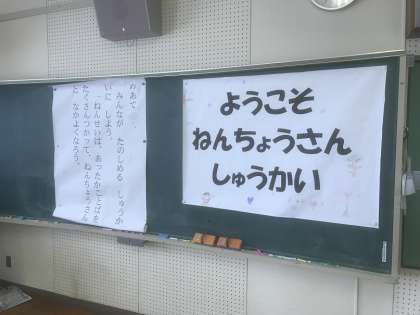 めあて
みんなが たのしめる しゅうか
いに しよう。
ねんせいは、あったかことばを
たくさんつかって、ねんちょうさん
と なかよくなろう。
ようこそ
ねんちょうさん
しゅうかい